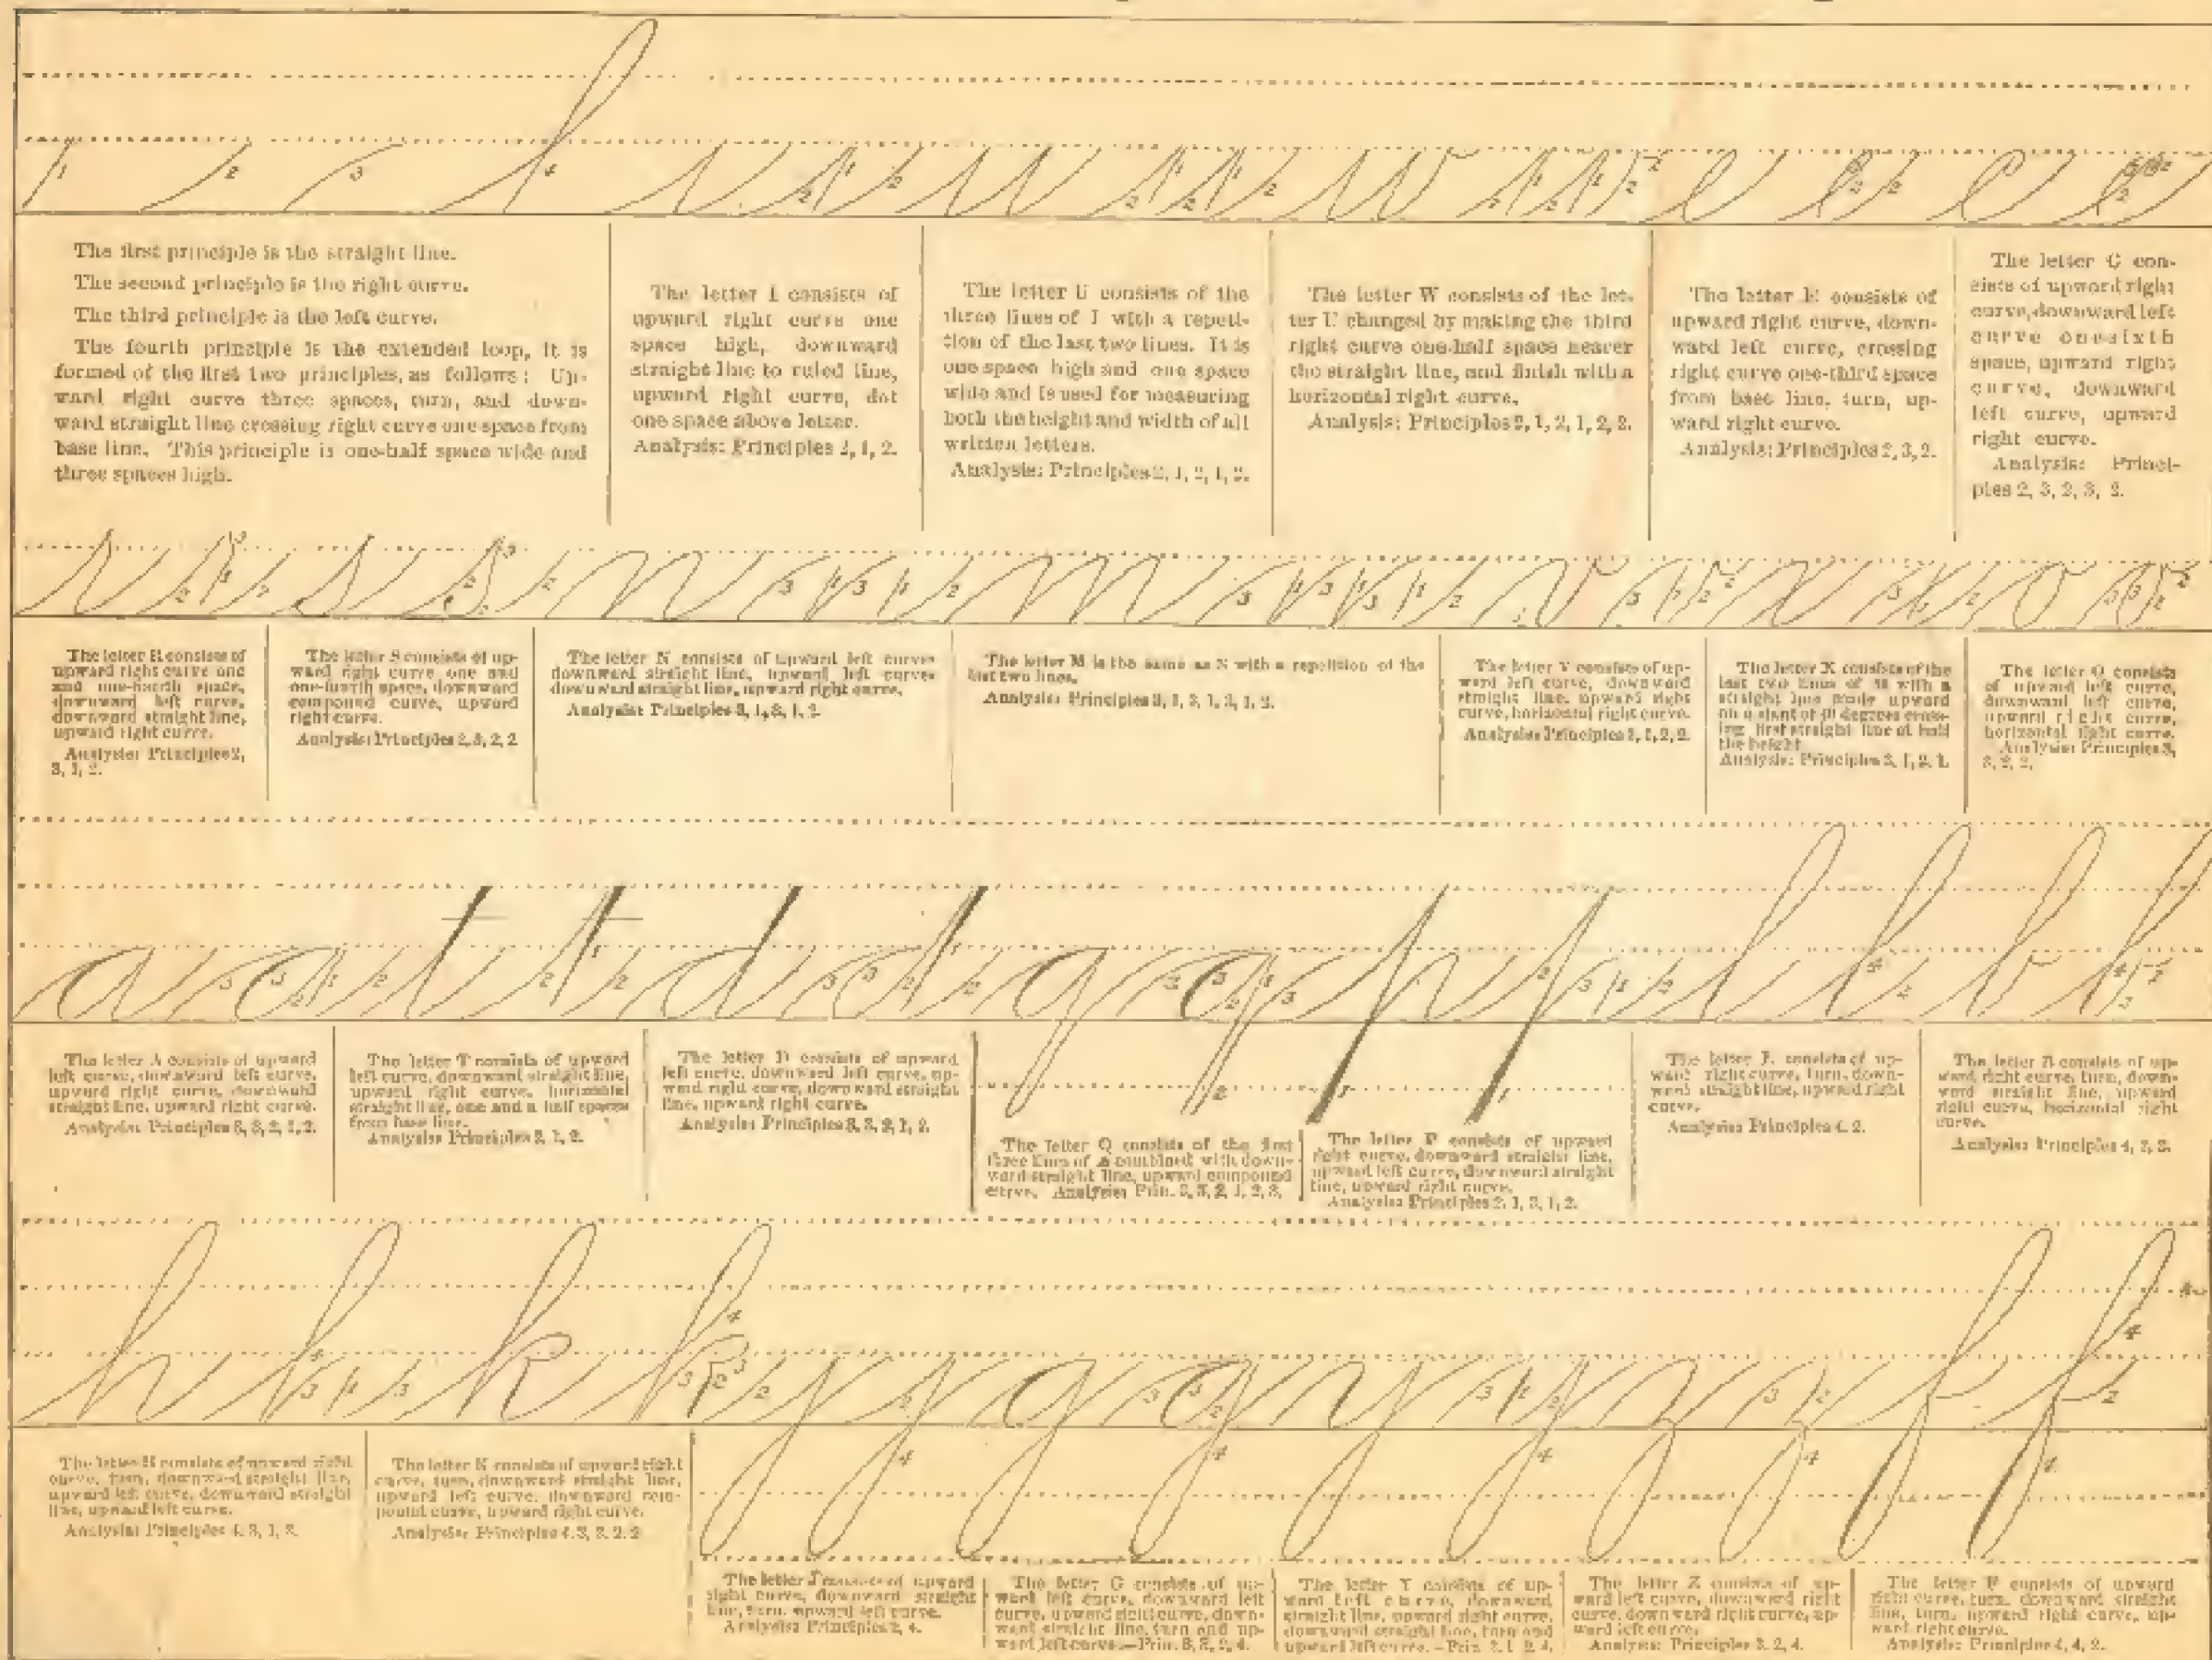 The first principle is the straight line.
The second principle is the right curve.
The third principle is the left curve.
The fourth principle is the extended loop, it is
formed of the first two principles, as follows: Up-
ward right curve three spaces, turn, and down-
ward straight line crossing right curve one space from
base line. This principle is one-half space wide and
three spaces high.
The letter I consists of
upward right curve one
space high, downward
straight line to ruled line,
upward right curve, dot
one space above letter.
Analysis: Principles 2, 1, 2.
The letter U consists of the
three lines of I with a repeti-
tion of the last two lines. It is
one space high and one space
wide and is used for measuring
both the height and width of all
written letters.
Analysis: Principles 2, 1, 2, 1, 2.
The letter W consists of the let-
ter U changed by making the third
right curve one-half space nearer
the straight line, and finish with a
horizontal right curve.
Analysis: Principles 2, 1, 2, 1, 2, 2.
The letter E consists of
upward right curve, down-
ward left curve, crossing
right curve one-third space
from base line, turn, up-
ward right curve.
Analysis: Principles 2, 3, 2.
The letter C con-
sists of upward right
curve, downward left
curve one-sixth
space, upward right
curve, downward
left curve, upward
right curve.
Analysis: Princi-
ples 2, 3, 2, 3, 2.
The letter R consists of
upward right curve one
and one-fourth space,
downward left curve,
downward straight line,
upward right curve.
Analysis: Principles 2,
3, 1, 2.
The letter S consists of up-
ward right curve one and
one-fourth space, downward
compound curve, upward
right curve.
Analysis: Principles 2, 3, 2, 2
The letter N consists of upward left curve
downward straight line, upward left curve
downward straight line, upward right curve.
Analysis: Principles 3, 1, 3, 1, 2.
The letter M is the same as N with a repetition of the
last two lines.
Analysis: Principles 3, 1, 3, 1, 3, 1, 2.
The letter V consists of up-
ward left curve, downward
straight line, upward right
curve, horizontal right curve.
Analysis: Principles 3, 1, 2, 2.
The letter X consists of the
last two lines of with a
straight line made upward
on a slant of degrees cross-
ing first straight line at half
the height
Analysis: Principles 3, 1, 2, 1.
The letter O consists
of upward left curve,
downward left curve,
upward right curve,
horizontal right curve.
Analysis: Principles 3,
3, 2, 2.
The letter A consists of upward
left curve, downward left curve,
upward right curve, downward
straight line, upward right curve.
Analysis: Principles 3, 3, 2, 1, 2.
The letter T consists of upward
left curve, downward straight line,
upward right curve, horizontal
straight line, one and a half spaces
from base line.
Analysis: Principles 2, 1, 2.
The letter D consists of upward
left curve, downward left curve, up-
ward right curve, downward straight
line, upward right curve.
Analysis: Principles 3, 3, 2, 1, 2.
The letter Q consists of the first
three lines of A combined with down-
ward straight line, upward compound
curve. Analysis: Prin. 3, 3, 2, 1, 2, 3.
The letter P consists of upward
right curve, downward straight line,
upward left curve, downward straight
line, upward right curve.
Analysis: Principles 2, 1, 3, 1, 2.
The letter L consists of up-
ward right curve, turn, down-
ward straight line, upward right
curve.
Analysis: Principles 4, 2.
The letter B consists of up-
ward right curve, turn, down-
ward straight line, upward
right curve, horizontal right
curve.
Analysis: Principles 4, 2, 2.
The letter H consists of upward right
curve, turn, downward straight line,
upward left curve, downward straight
line, upward left curve.
Analysis: Principles 4, 3, 1, 2.
The letter K consists of upward right
curve, turn, downward straight line,
upward left curve, downward com-
pound curve, upward right curve.
Analysis: Principles 4, 3, 3, 2, 2
The letter J consists of upward
right curve, downward straight
line, turn, upward left curve.
Analysis: Principles 2, 4.
The letter G consists of up-
ward left curve, downward left
curve, upward right curve, down-
ward straight line, turn and up-
ward left curve.—Prin. 3, 3, 2, 4.
The letter Y consists of up-
ward left curve, downward
straight line, upward right curve,
downward straight line, turn and
upward left curve.—Prin. 3, 1, 2, 4.
The letter Z consists of up-
ward left curve, downward right
curve, downward right curve, up-
ward left curve.
Analysis: Principles 3, 2, 4.
The letter F consists of upward
right curve, turn, downward straight
line, turn, upward right curve, up-
ward right curve.
Analysis: Principles 4, 4, 2.